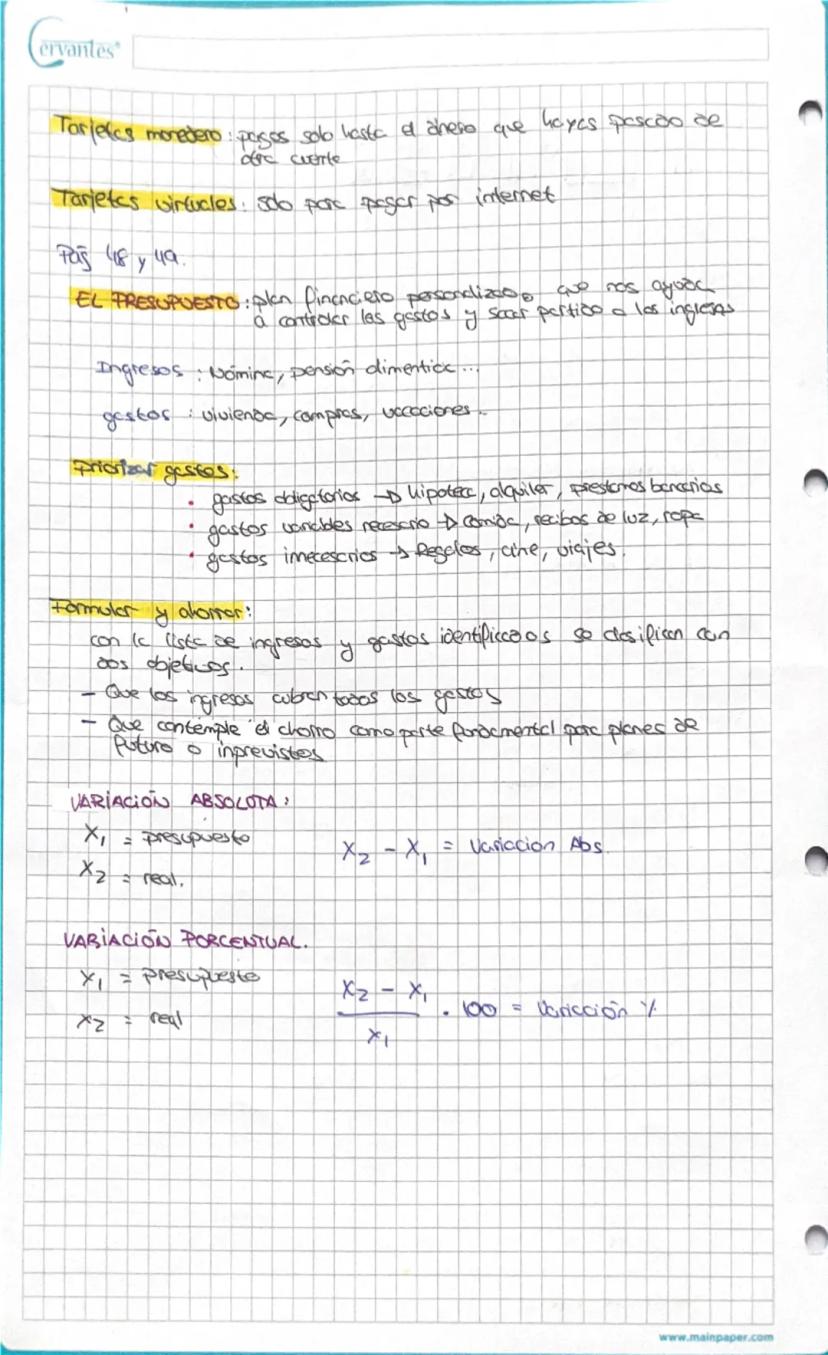 Cervantes®
Tarjetas monedero: pagas solo hasta el dinero que hayas pasado de
otra cuenta
Tarjetas virtuales: solo para pagar por internet
Pág 48 y 49.
EL PRESUPUESTO: plan financiero personalizado que nos ayuda
a controlar los gastos y sacar partido a los ingresos
Ingresos: Nómina, pensión alimenticia...
gastos: vivienda, compras, vacaciones..
Priorizar gastos:
• gastos obligatorios → hipoteca, alquiler, prestamos bancarios
• gastos variables necesario → comida, recibos de luz, ropa
• gastos innecesarios → Regalos, cine, viajes.
Formular y ahorrar:
con la lista de ingresos y gastos identificados se clasifican con
dos objetivos.
- Que los ingresos cubran todos los gastos
- Que contemple el ahorro como parte fundamental para planes de
futuro o inprevistos
VARIACIÓN ABSOLUTA:
X₁ = presupuesto
X₂ - X₁ = Variacion Abs.
X₂ = real.
VARIACIÓN PORCENTUAL.
X₁ = presupuesto
X₂ - X₁
X₂ = real
· 100 = Variación %
X₁
www.mainpaper.com